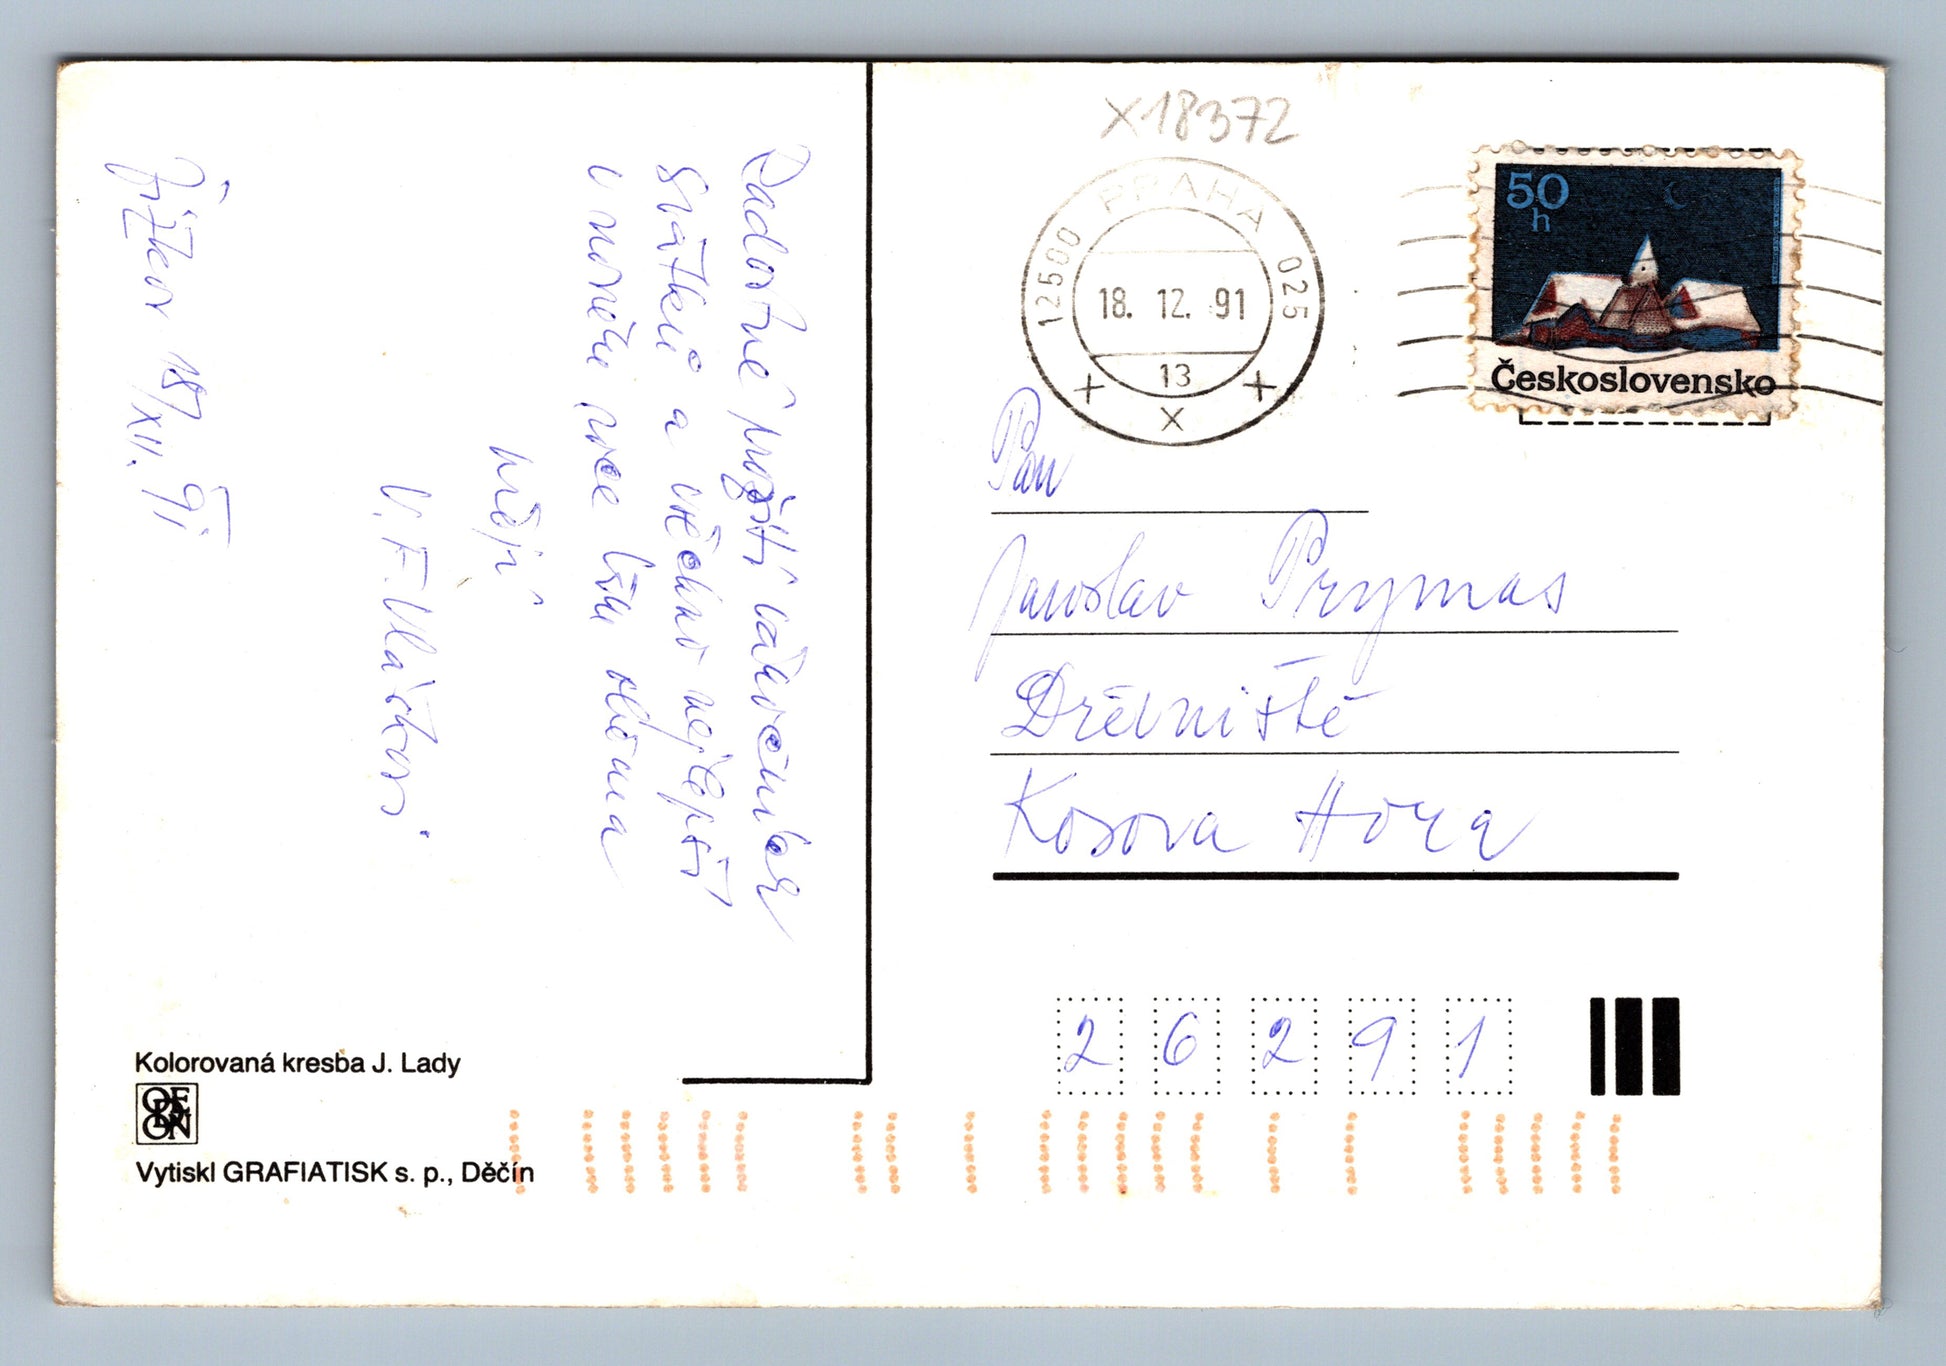 Radostné prožití vánočních
svátků a všechno nejlepší
v novém roce
přejí
V. F. Vlačkovi
Žižkov 18/XII. 91
Kolorovaná kresba J. Lady
ODEON
Vytiskl GRAFIATISK s. p., Děčín
X18372
12500 PRAHA 025
18. 12. 91
13
50
h
Československo
Pan
Jaroslav Prymas
Dřevniště
Kosova Hora
26291